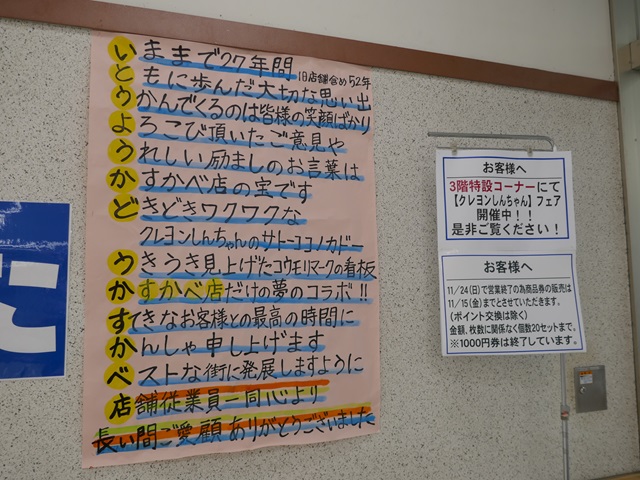 いままで27年間 旧店舗含め52年
ともに歩んだ大切な思い出
うかんでくるのは皆様の笑顔ばかり
よろこび頂いたご意見や
うれしい励ましのお言葉は
かすかべ店の宝です
どきどきワクワクな
クレヨンしんちゃんのサトーココノカドー
うきうき見上げたコウモリマークの看板
かすかべ店だけの夢のコラボ!!
すてきなお客様との最高の時間に
かんしゃ申し上げます
ベストな街に発展しますように
店舗従業員一同心より
長い間ご愛顧ありがとうございました
お客様へ
3階特設コーナーにて
【クレヨンしんちゃん】フェア
開催中!!
是非ご覧ください!
お客様へ
11/24(日)で営業終了の為商品券の販売は
11/15(金)までとさせていただきます。
(ポイント交換は除く)
金額、枚数に関係なく個数20セットまで。
※1000円券は終了しています。